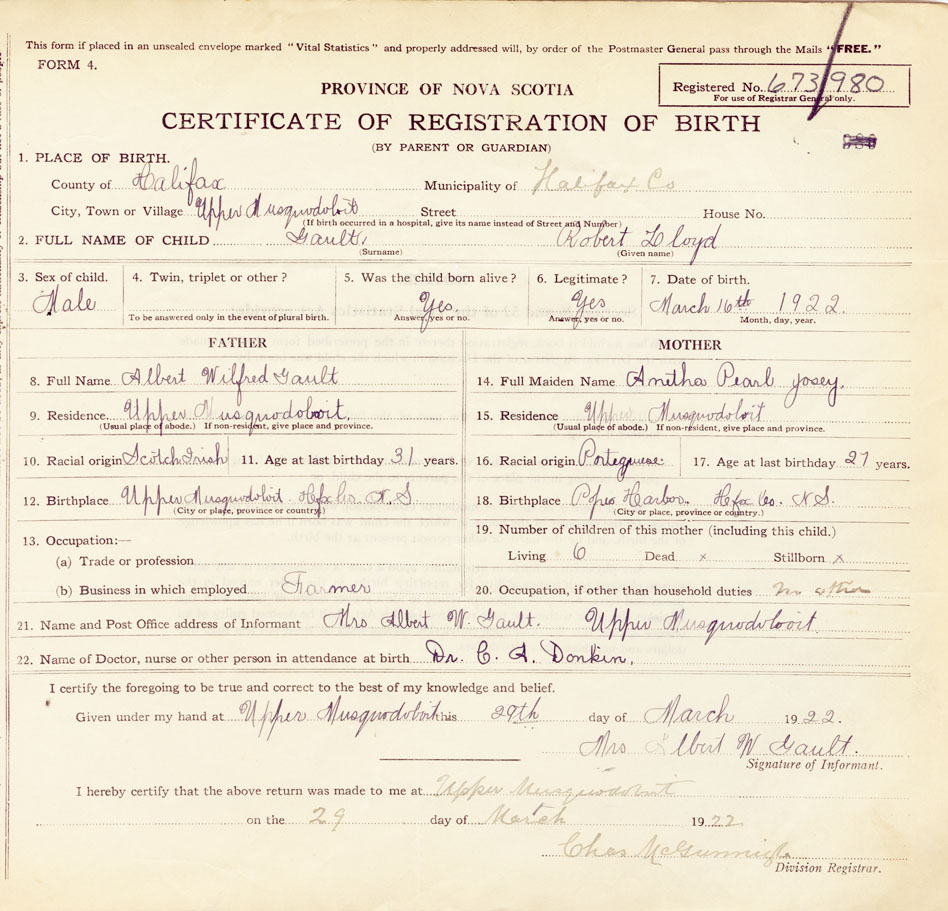 This form if placed in an unsealed envelope marked "Vital Statistics" and properly addressed will, by order of the Postmaster General pass through the Mails "FREE."
FORM 4.
PROVINCE OF NOVA SCOTIA
Registered No. 673/980
For use of Registrar General only.
CERTIFICATE OF REGISTRATION OF BIRTH
(BY PARENT OR GUARDIAN)
1. PLACE OF BIRTH.
County of Halifax Municipality of Halifax Co
City, Town or Village Upper Musquodoboit Street House No.
(If birth occurred in a hospital, give its name instead of Street and Number)
2. FULL NAME OF CHILD Gault, Robert Lloyd
(Surname) (Given name)
3. Sex of child. 4. Twin, triplet or other? 5. Was the child born alive? 6. Legitimate? 7. Date of birth.
Male Yes. Yes March 16th 1922.
To be answered only in the event of plural birth. Answer, yes or no. Answer, yes or no. Month, day, year.
FATHER MOTHER
8. Full Name Albert Wilfred Gault 14. Full Maiden Name Anetha Pearl Yosey.
9. Residence. Upper Musquodoboit. 15. Residence Upper Musquodoboit
(Usual place of abode.) If non-resident, give place and province. (Usual place of abode.) If non-resident, give place and province.
10. Racial origin Scotch Irish 11. Age at last birthday 31 years. 16. Racial origin Portegunese. 17. Age at last birthday 27 years.
12. Birthplace Upper Musquodoboit Hfx Co. N.S 18. Birthplace Popes Harbor. Hfax Co. N.S.
(City or place, province or country.) (City or place, province or country.)
13. Occupation:— 19. Number of children of this mother (including this child.)
(a) Trade or profession Living 6 Dead x Stillborn x
(b) Business in which employed Farmer 20. Occupation, if other than household duties no other
21. Name and Post Office address of Informant Mrs Albert W. Gault. Upper Musquodoboit.
22. Name of Doctor, nurse or other person in attendance at birth Dr. C. A. Donkin.
I certify the foregoing to be true and correct to the best of my knowledge and belief.
Given under my hand at Upper Musquodoboit this 29th day of March 1922.
Mrs Albert W Gault.
Signature of Informant.
I hereby certify that the above return was made to me at Upper Musquodoboit
on the 29 day of March 1922
Chas
Division Registrar.